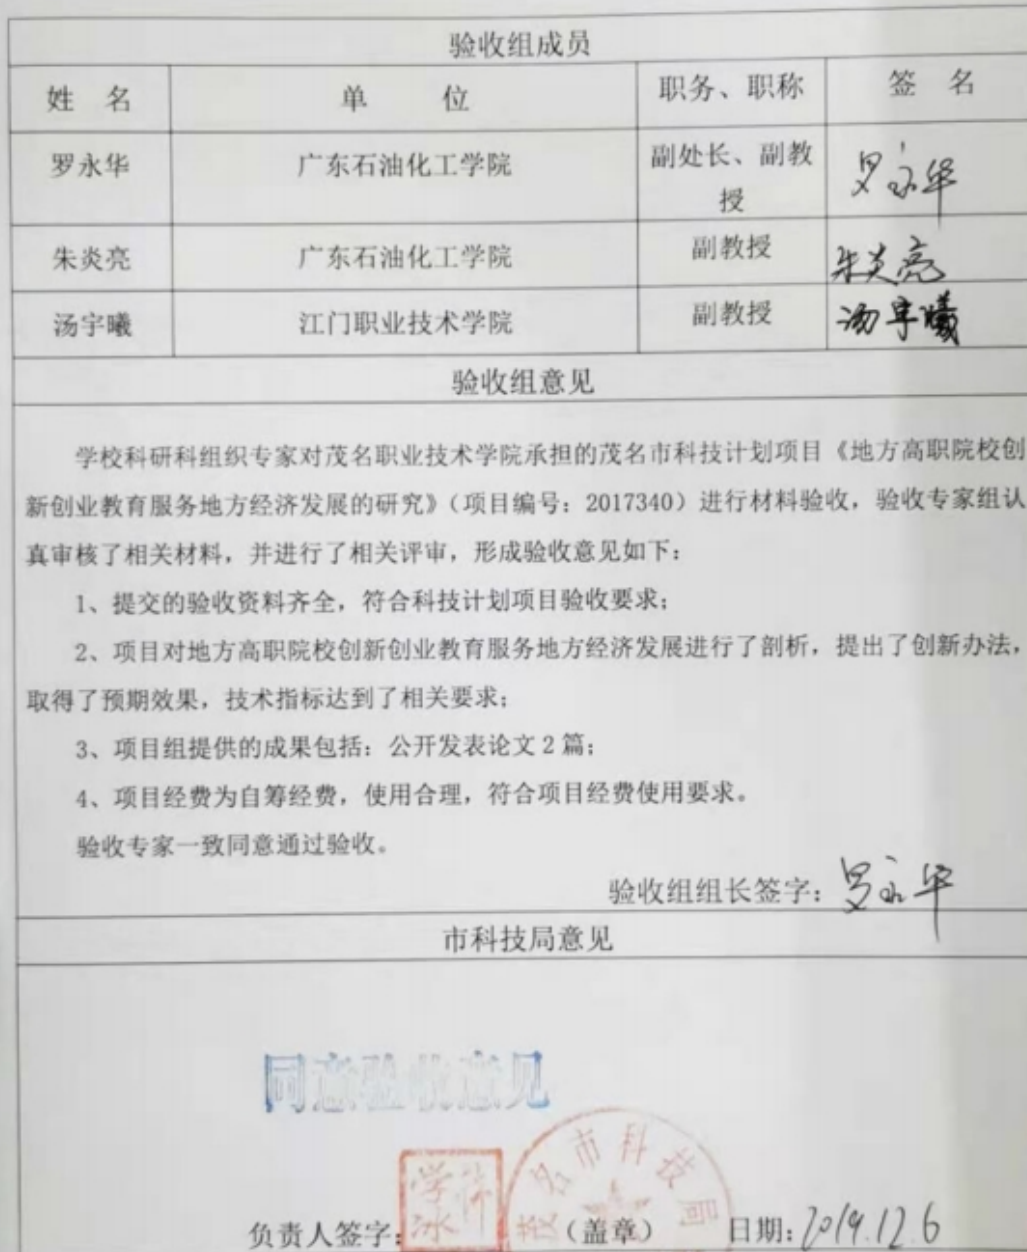 验收组成员
姓 名 单 位 职务、职称 签 名
罗永华 广东石油化工学院 副处长、副教授 罗永华
朱炎亮 广东石油化工学院 副教授 朱炎亮
汤宇曦 江门职业技术学院 副教授 汤宇曦
验收组意见
学校科研科组织专家对茂名职业技术学院承担的茂名市科技计划项目《地方高职院校创
新创业教育服务地方经济发展的研究》（项目编号：2017340）进行材料验收，验收专家组认
真审核了相关材料，并进行了相关评审，形成验收意见如下：
1、提交的验收资料齐全，符合科技计划项目验收要求；
2、项目对地方高职院校创新创业教育服务地方经济发展进行了剖析，提出了创新办法，
取得了预期效果，技术指标达到了相关要求；
3、项目组提供的成果包括：公开发表论文2篇；
4、项目经费为自筹经费，使用合理，符合项目经费使用要求。
验收专家一致同意通过验收。
验收组组长签字：罗永华
市科技局意见
同意验收意见
茂名市科技局
负责人签字： （盖章） 日期：2019.12.6